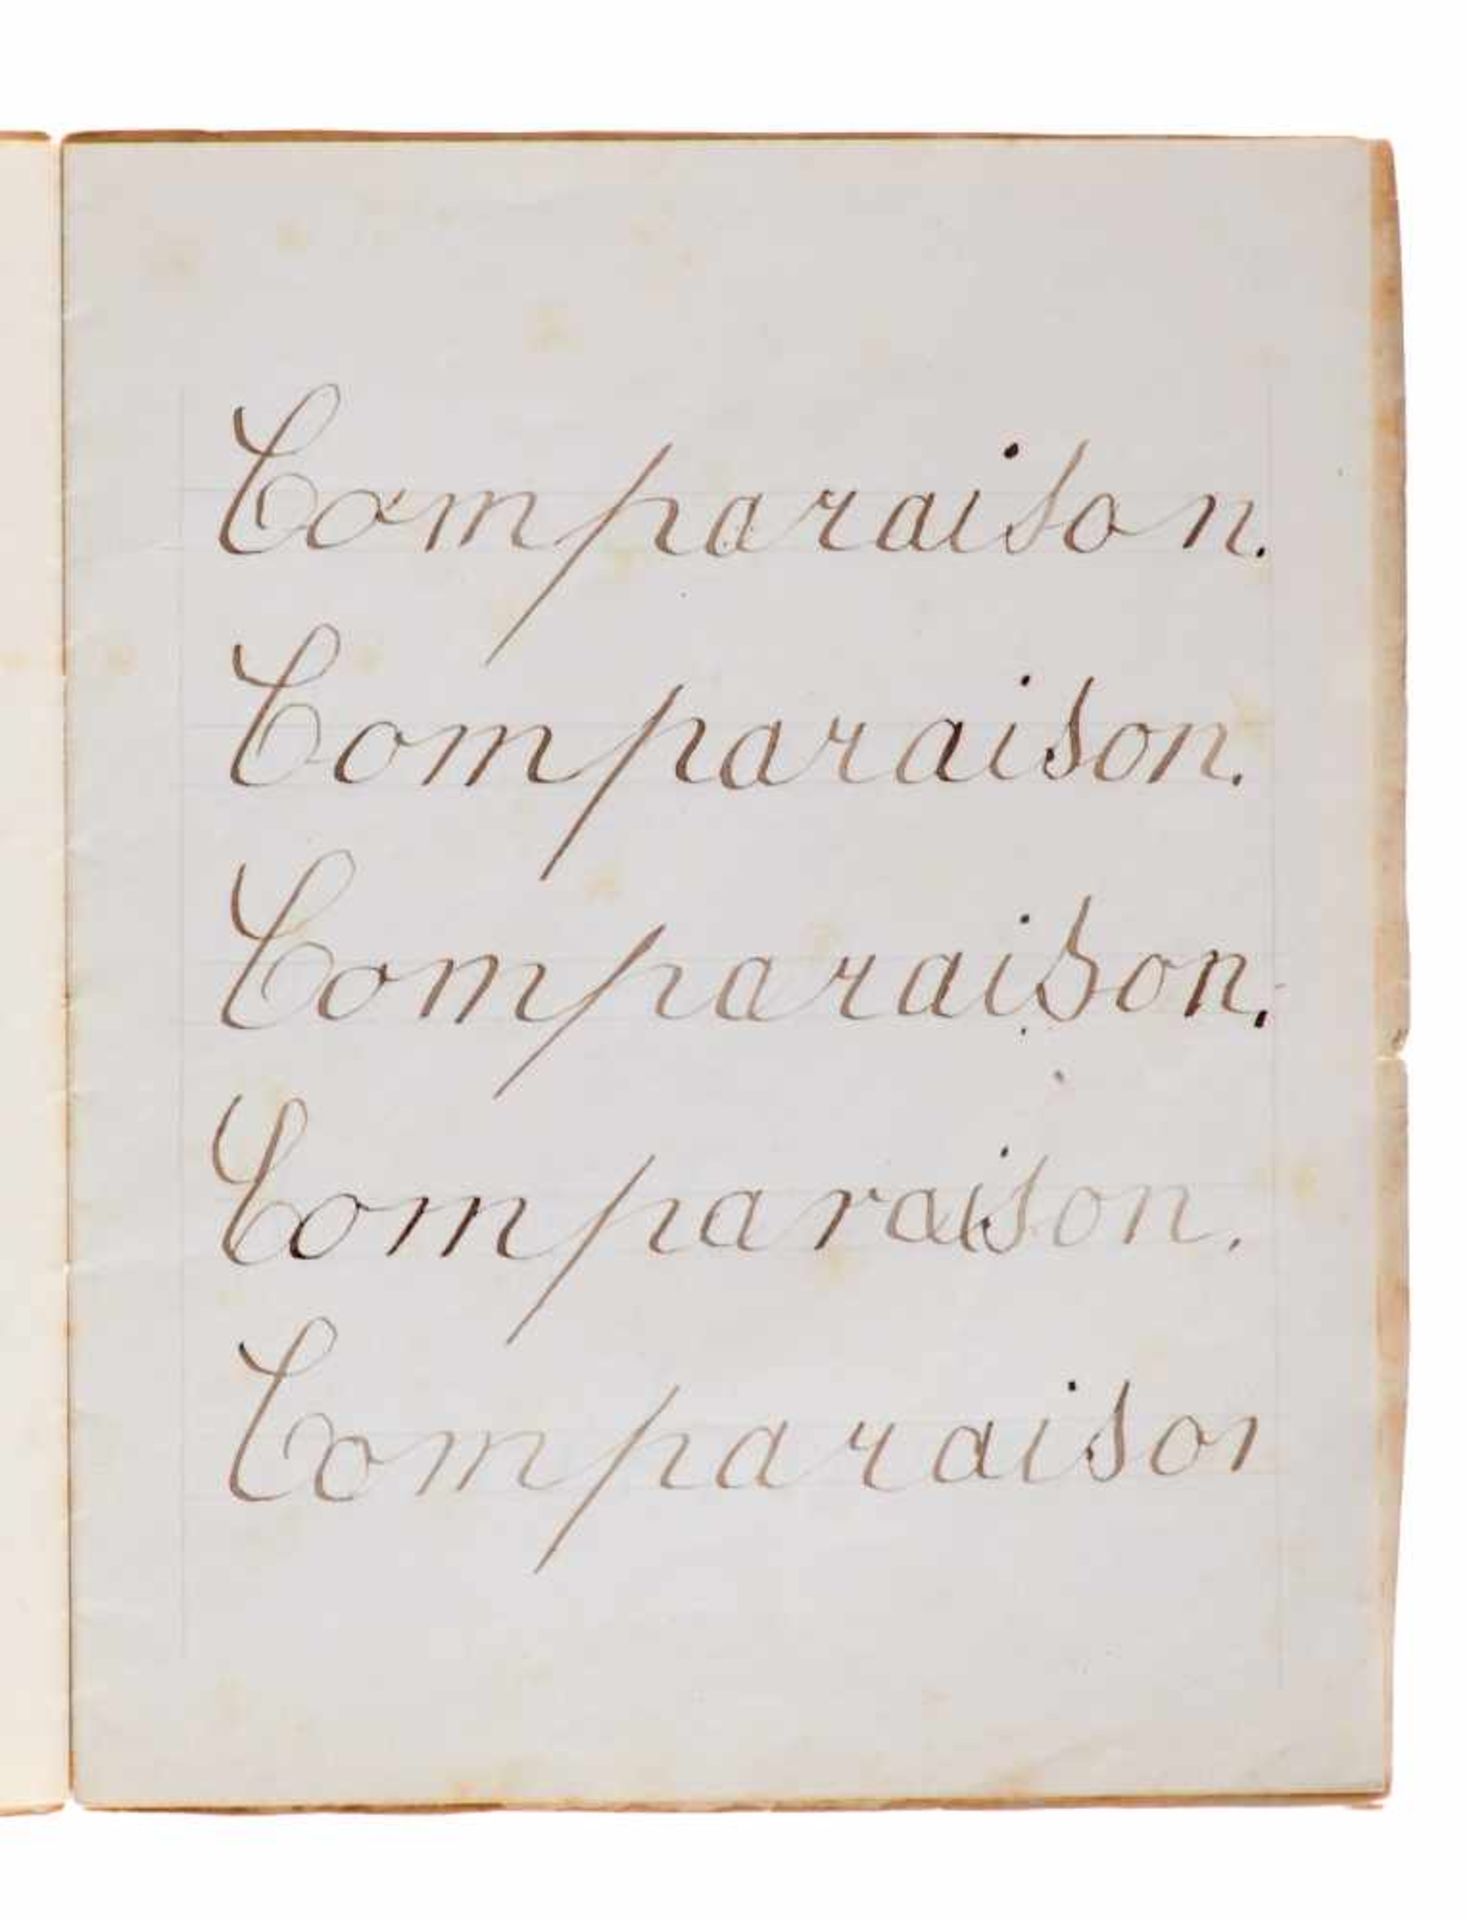 Comparaison.
Comparaison.
Comparaison.
Comparaison.
Comparaison